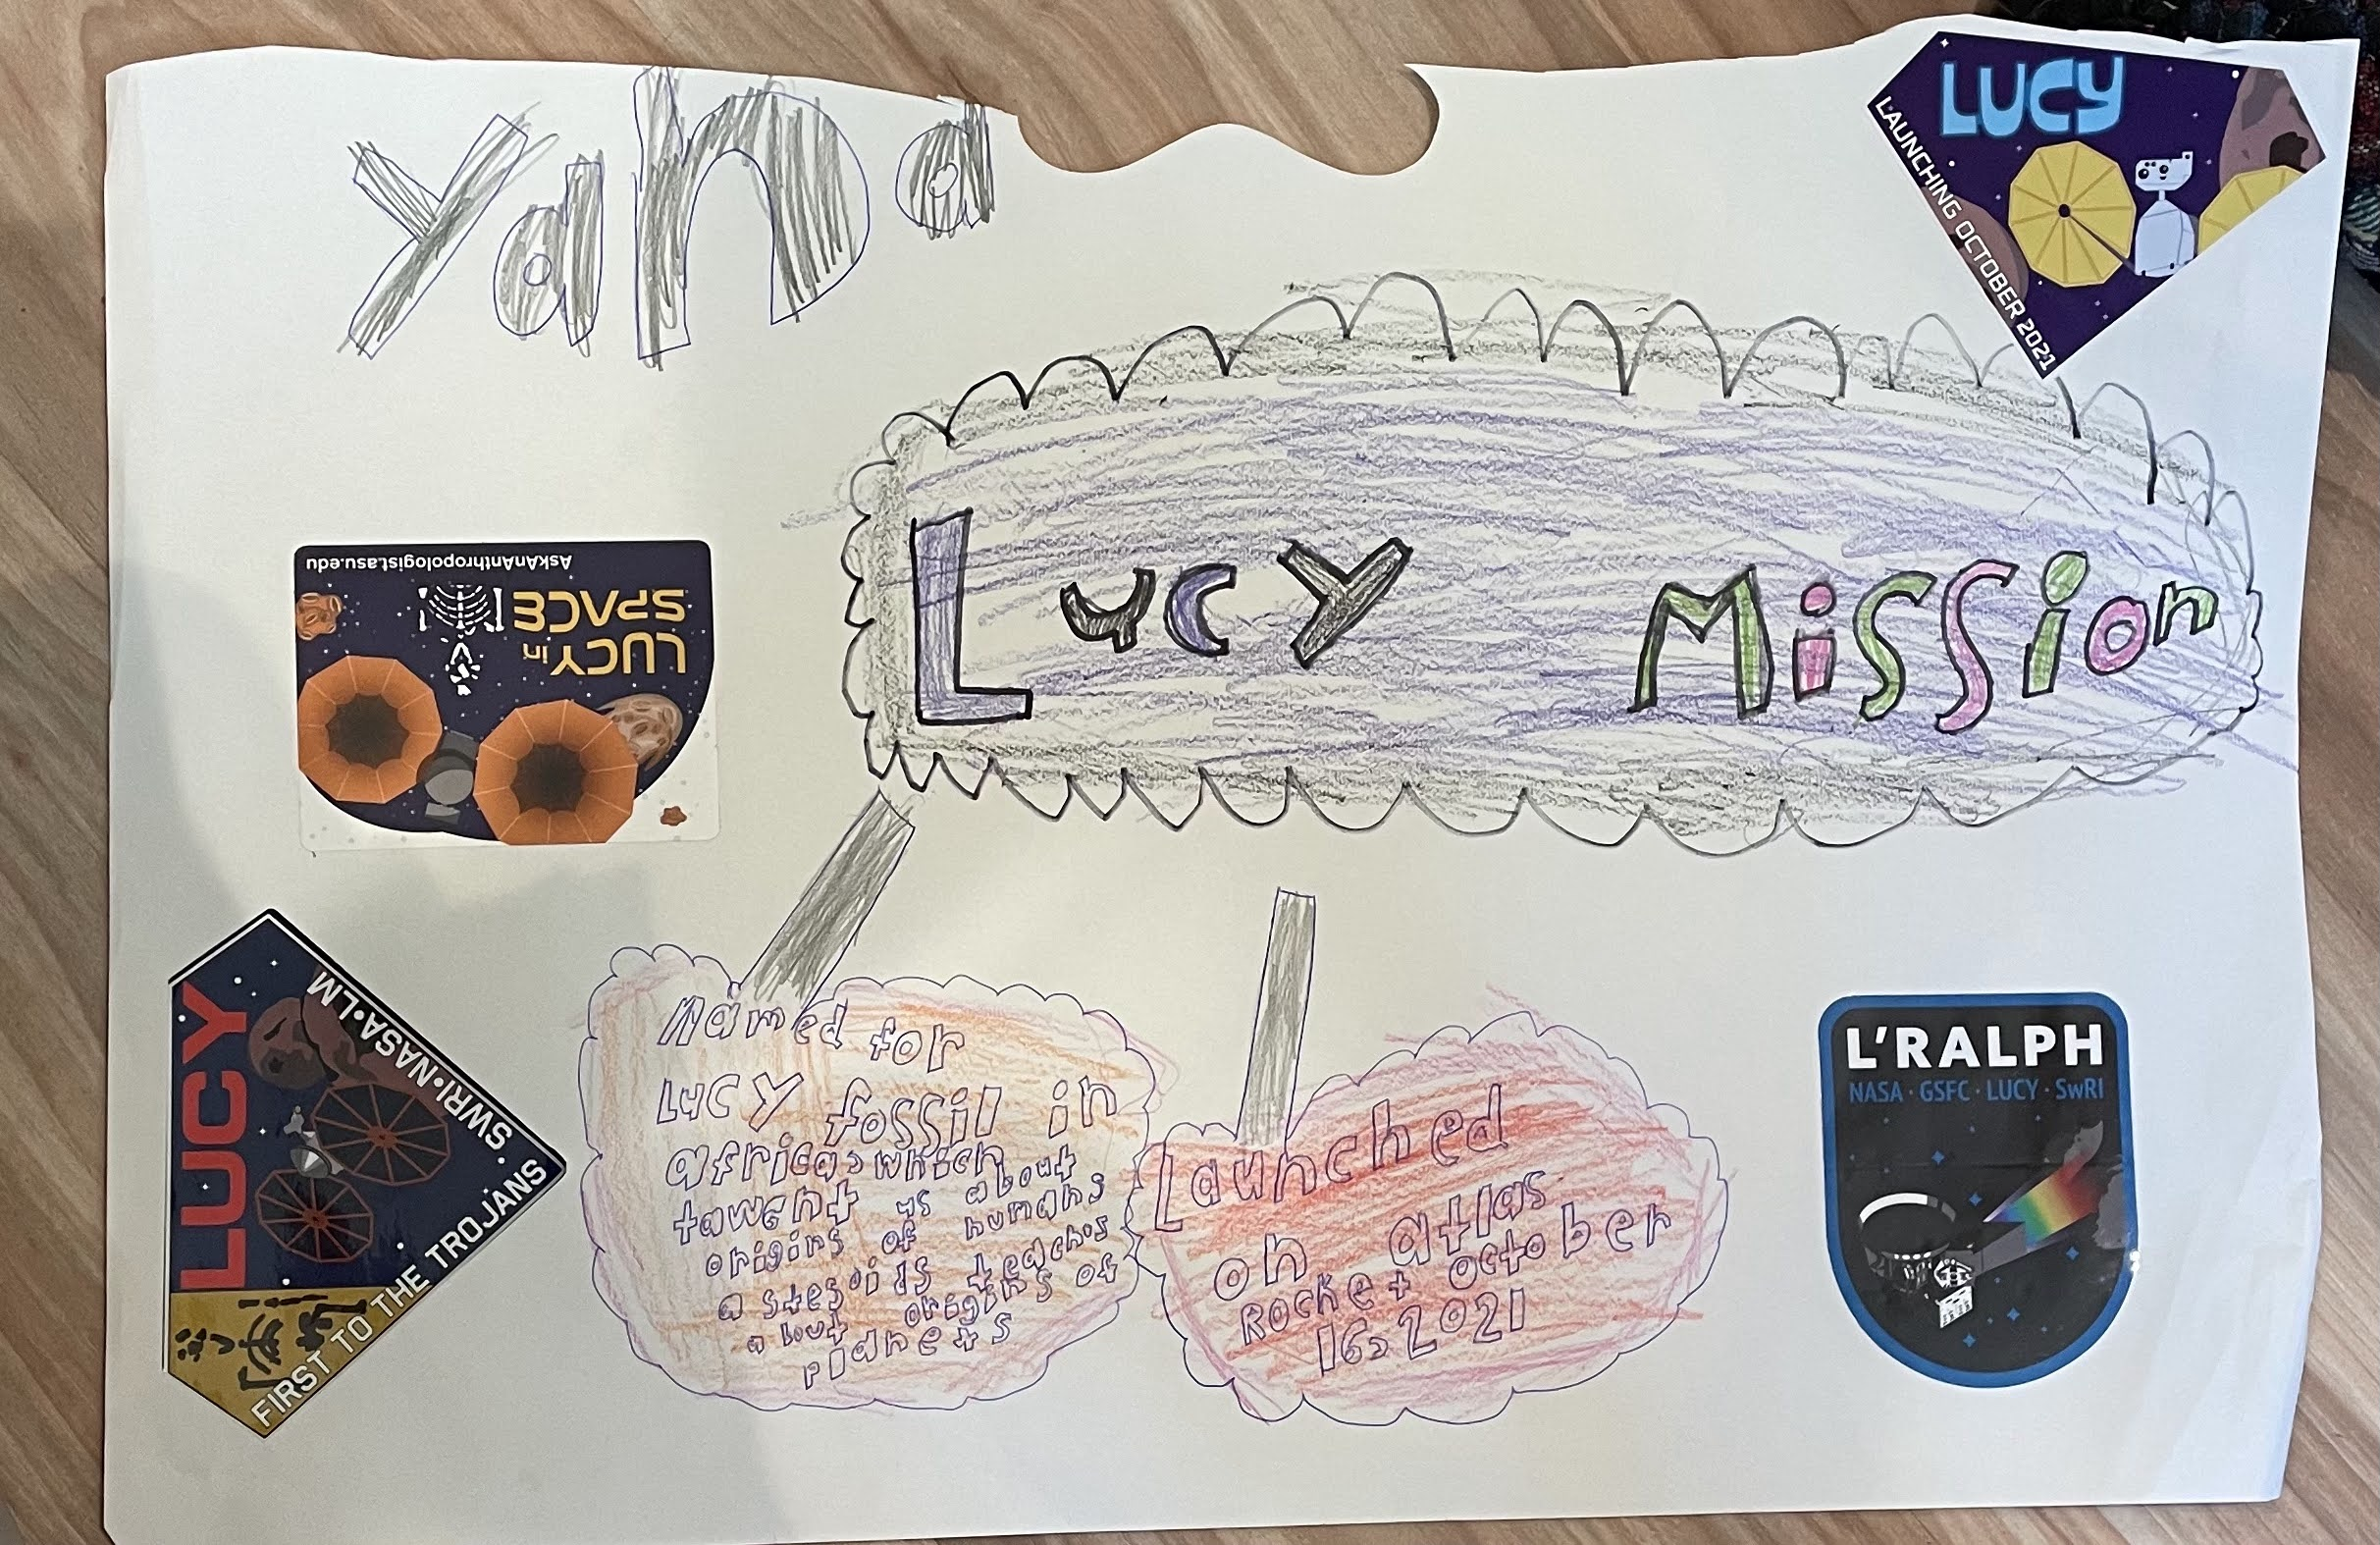 Yana
LUCY
LAUNCHING OCTOBER 2021
Lucy Mission
AskAnAnthropologist.asu.edu
LUCY in
SPACE
LUCY
SWRI·NASA·LM
FIRST TO THE TROJANS
Named for
LUCY fossil in
africa, which
tawent us about
origins of humans
astesoids teaches
about origins of
planets
Launched
on atlas
Rocket october
16, 2021
L'RALPH
NASA · GSFC · LUCY · SwRI